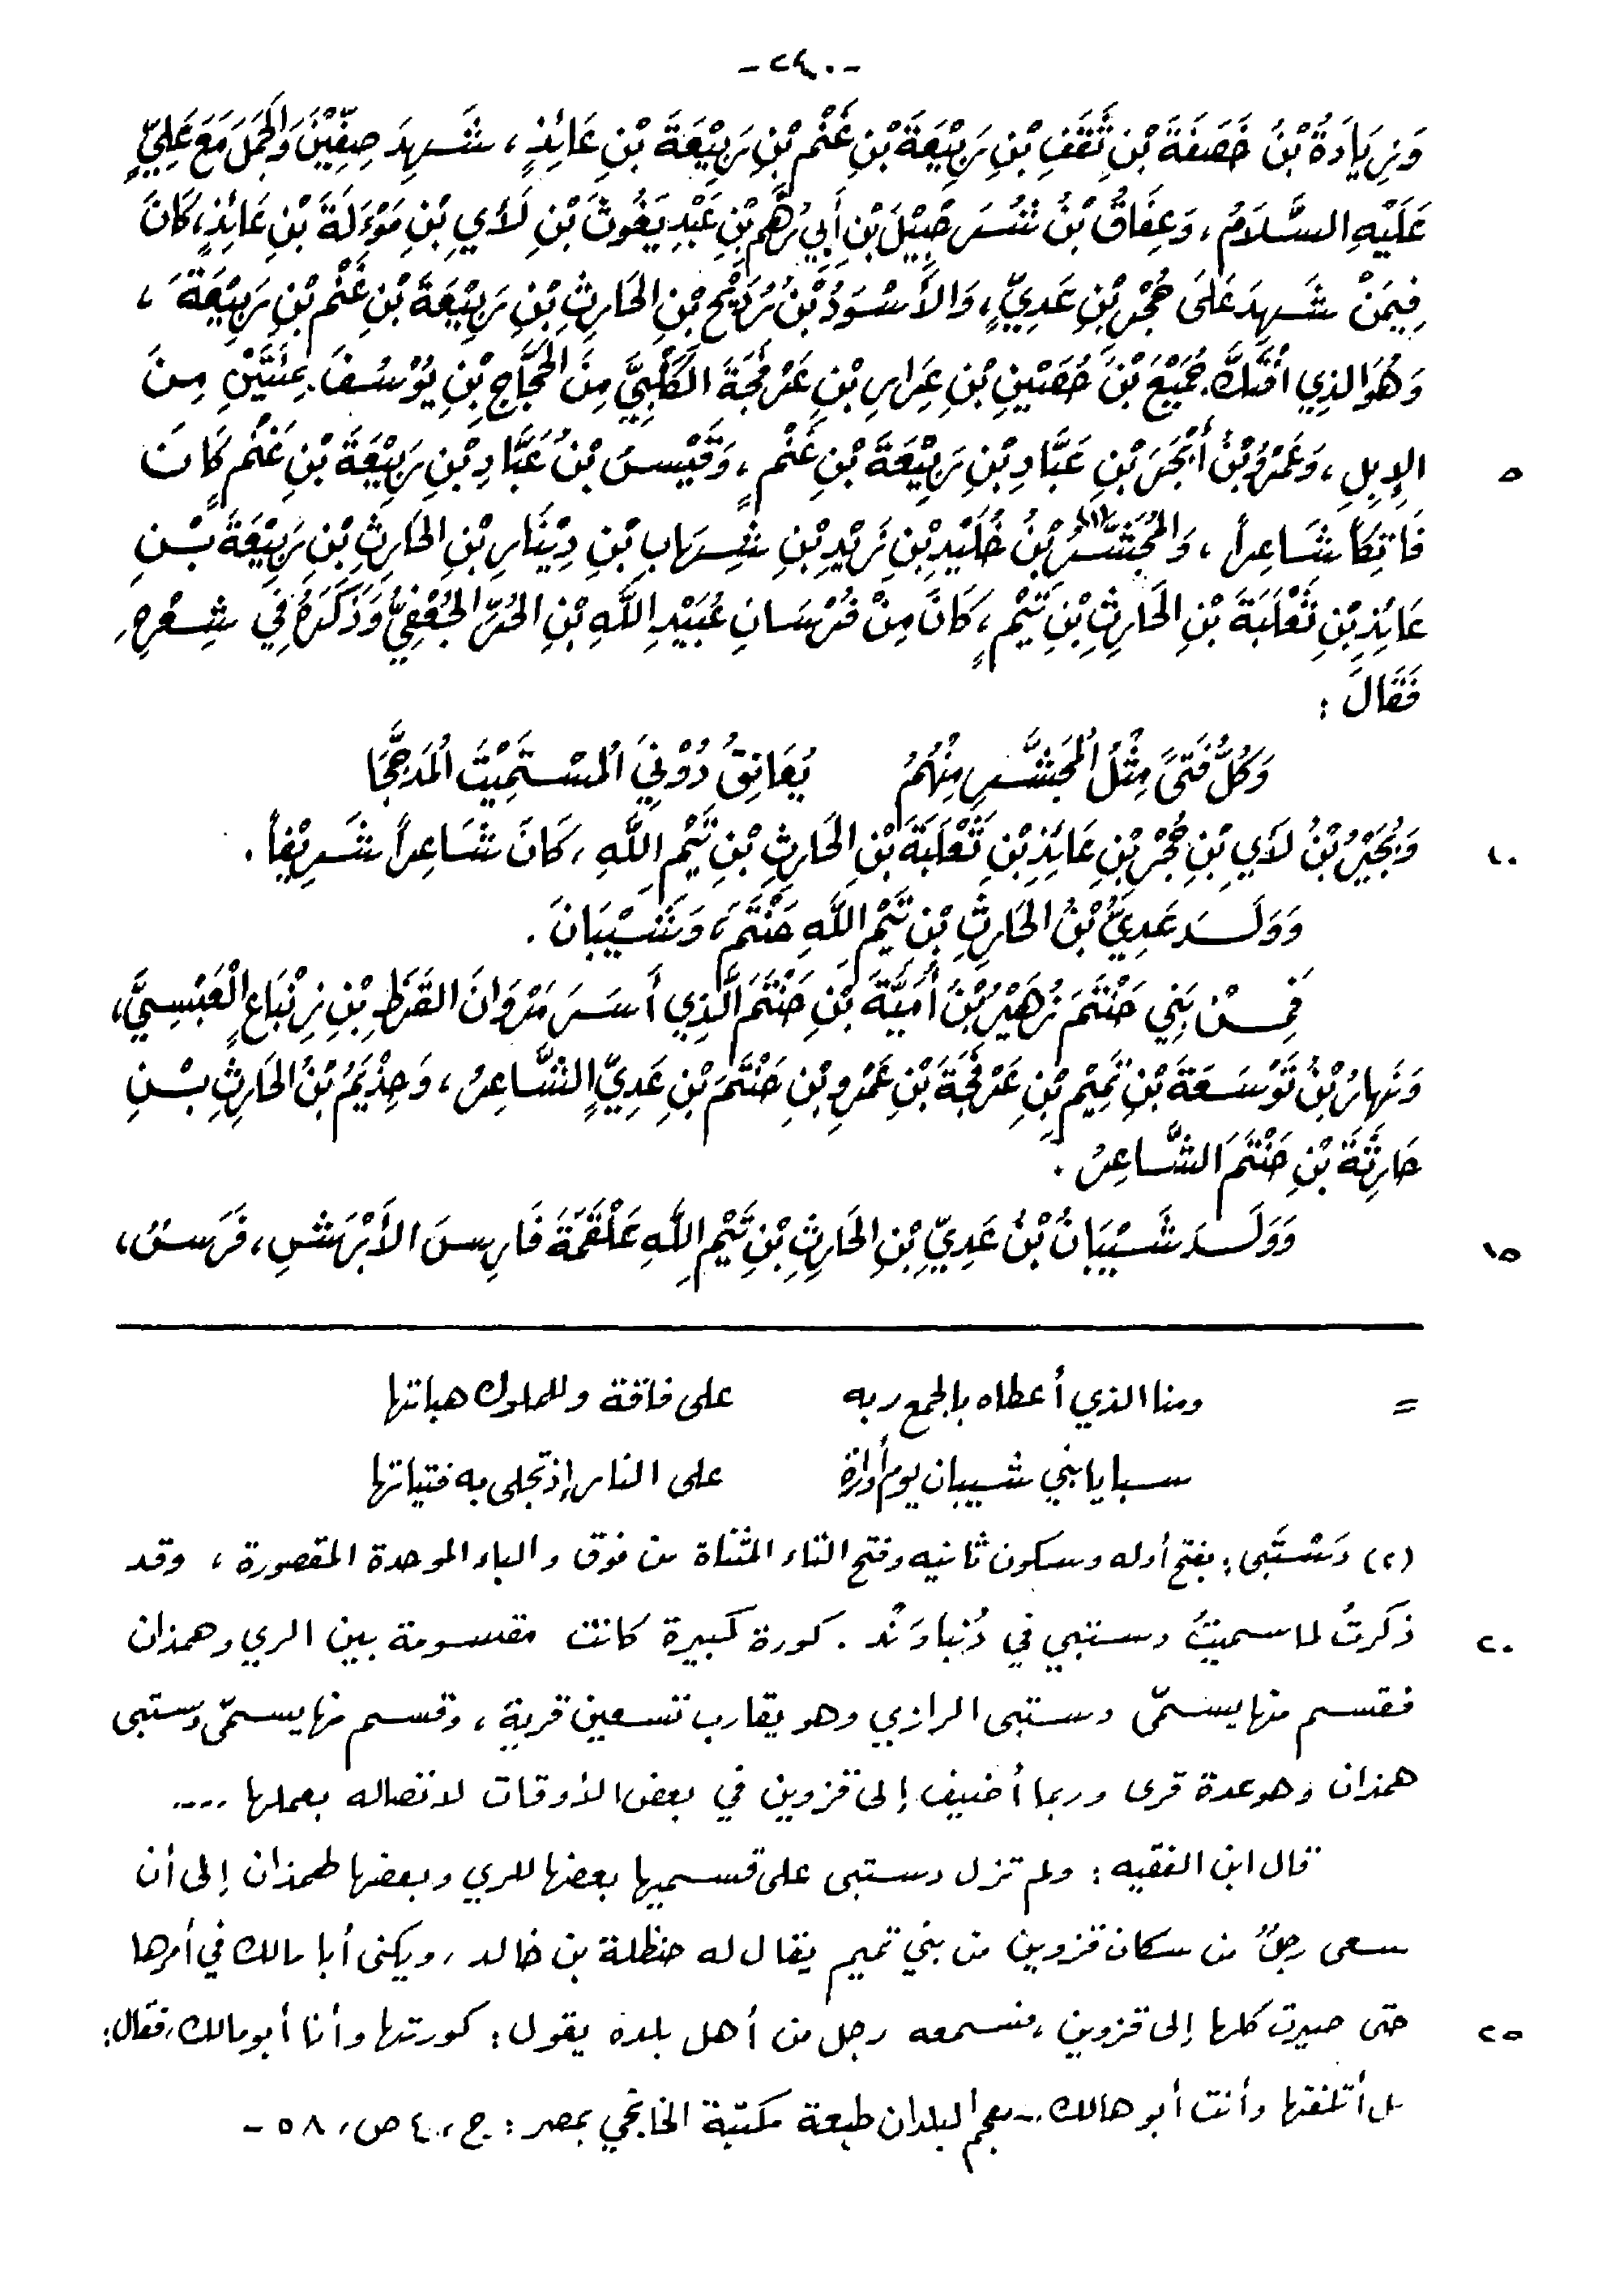 -٢٤٠-
وَزِيَادَةُ بْنُ خَصَفَةَ بْنِ ثَقَفِ بْنِ رَبِيْعَةَ بْنِ غَنْمِ بْنِ رَبِيْعَةَ بْنِ عَائِذٍ، شَهِدَ صِفِّيْنَ وَالجَمَلَ مَعَ عَلِيٍّ
عَلَيْهِ السَّلَامُ، وَعِفَاقُ بْنُ شُرَحْبِيْلَ بْنِ أَبِي رُهْمِ بْنِ عَبْدِ يَغُوثَ بْنِ لَأيِ بْنِ مَوْءَلَةَ بْنِ عَائِذٍ، كَانَ
فِيمَنْ شَهِدَ عَلَى حُجْرِ بْنِ عَدِيٍّ، وَالأَسْوَدُ بْنُ رُدَيْحِ بْنِ الحَارِثِ بْنِ رَبِيْعَةَ بْنِ غَنْمِ بْنِ رَبِيْعَةَ،
وَهُوَ الذِي افْتَكَّ جُمَيْعَ بْنَ حُصَيْنِ بْنِ عِرَارِ بْنِ عَرْفَجَةَ الكَلْبِيَّ مِنَ الحَجَّاجِ بْنِ يُوْسُفَ بِمِئَتَيْنِ مِنَ
الإِبِلِ، وَعَمْرُو بْنُ أَبْجَرَ بْنِ عَبَّادِ بْنِ رَبِيْعَةَ بْنِ غَنْمٍ، وَقَيْسُ بْنُ عَبَّادِ بْنِ رَبِيْعَةَ بْنِ غَنْمٍ كَانَ
٥
فَاتِكاً شَاعِراً، وَالمُجَشَّرُ(١) بْنُ خُلَيْدِ بْنِ زَيْدِ بْنِ شِهَابِ بْنِ دِيْنَارِ بْنِ الحَارِثِ بْنِ رَبِيْعَةَ بْنِ
عَائِذِ بْنِ ثَعْلَبَةَ بْنِ الحَارِثِ بْنِ تَيْمٍ، كَانَ مِنْ فُرْسَانِ عُبَيْدِ اللَّهِ بْنِ الحُرِّ الجُعْفِيُّ وَذَكَرَهُ فِي شِعْرِهِ
فَقَالَ:
وَكُلُّ فَتَىً مِثْلُ المُجَشَّرِ مِنْهُمُ يُعَانِقُ دُوْنِيَ المُسْتَمِيْتَ المُدَجَّجَا
وَبُجَيْرُ بْنُ لَأيِ بْنِ حُجْرِ بْنِ عَائِذِ بْنِ ثَعْلَبَةَ بْنِ الحَارِثِ بْنِ تَيْمِ اللَّهِ، كَانَ شَاعِراً شَرِيْفاً.
١٠
وَوَلَدَ عَدِيُّ بْنُ الحَارِثِ بْنِ تَيْمِ اللَّهِ حَنْتَمَ، وَشَيْبَانَ.
فَمِنْ بَنِي حَنْتَمَ زُهَيْرُ بْنُ أُمَيَّةَ بْنِ حَنْتَمَ الَّذِي أَسَرَ مَرْوَانَ القَرَظِ بْنِ زِنْبَاعٍ الْعَبْسِيَّ،
وَنَهارُ بْنُ تَوْسَعَةَ بْنِ تَمِيْمِ بْنِ عَرْفَجَةَ بْنِ عَمْرِو بْنِ حَنْتَمَ بْنِ عَدِيٍّ الشَّاعِرُ، وَحِذْيَمُ بْنُ الحَارِثِ بْنِ
حَارِثَةَ بْنِ حَنْتَمَ الشَّاعِرُ.
وَوَلَدَ شَيْبَانُ بْنُ عَدِيِّ بْنِ الحَارِثِ بْنِ تَيْمِ اللَّهِ عَلْقَمَةَ فَارِسَ الأَبْرَشِ، فَرَسٌ،
١٥
= ومنا الذي أعطاه بالجمع ربه على فاقة وللملوك هباتها
سبايا بني شيبان يوم أوارة على النار إذ تجلى به فتياتها
(٢) دَسْتَبَى: بفتح أوله وسكون ثانيه وفتح التاء المثناة من فوق والباء الموحدة المقصورة، وقد
ذكرتُ لما سميتْ دستبي في دُنباوَنْد. كورة كبيرة كانت مقسومة بين الري وهمذان
٢٠
فقسم منها يسمّى دستبى الرازي وهو يقارب تسعين قرية، وقسم منها يسمّى دستبى
همذان وهو عدة قرى وربما أضيف إلى قزوين في بعض الأوقات لاتصاله بعملها ....
قال ابن الفقيه: ولم تزل دستبى على قسميها بعضها للري وبعضها لهمذان إلى أن
سعى رجلٌ من سكان قزوين من بني تميم يقال له حنظلة بن خالد، ويكنى أبا مالك في أمرها
حتى صيرت كلها إلى قزوين، فسمعه رجل من أهل بلده يقول: كورتها وأنا أبو مالك، فقال:
٢٥
بل أتلفتها وأنت أبو هالك. - معجم البلدان طبعة مكتبة الخانجي بمصر: ج، ٤ ص، ٥٨ -